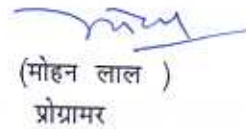 (मोहन लाल )
प्रोग्रामर